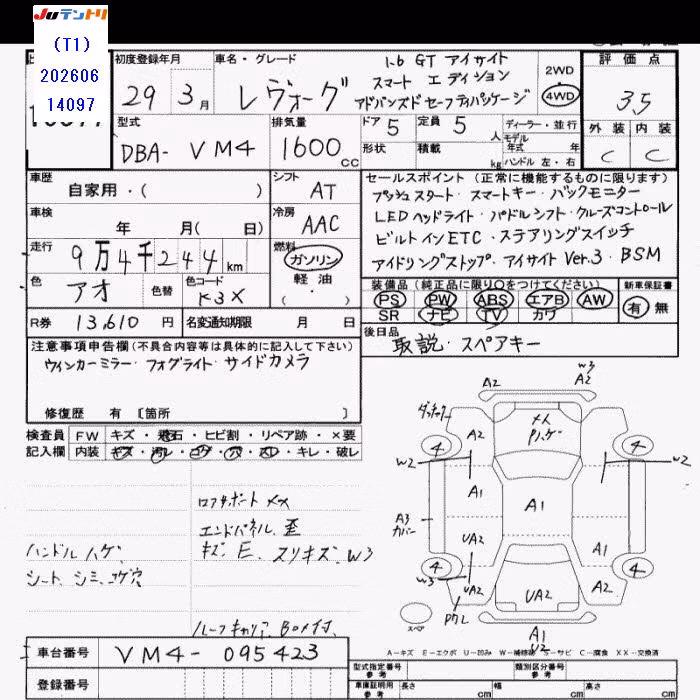 JUテントリ
(T1)
202606
14097
初度登録年月
29 年 3 月
車名・グレード
レヴォーグ
1.6 GT アイサイト
スマート エディション
アドバンスドセーフティパッケージ
2WD
4WD
評価点
3.5
外装 内装
C C
型式
DBA- VM4
排気量
1600 cc
ドア 5
定員 5 人
ディーラー・並行
モデル年式 年
形状
積載 kg
ハンドル 左・右
車歴
自家用・( )
シフト AT
車検
年 月( 日)
冷房 AAC
走行
9万4千244 km
燃料
ガソリン
軽油
( )
色 アオ
色替
色コード K3X
R券 13,610 円
名変通知期限 月 日
セールスポイント (正常に機能するものに限ります)
プッシュスタート・スマートキー・バックモニター
LEDヘッドライト・パドルシフト・クルーズコントロール
ビルトインETC・ステアリングスイッチ
アイドリングストップ・アイサイト Ver.3・BSM
装備品 (純正品に限り○をつけてください)
PS PW ABS エアB AW
SR ナビ TV カワ
新車保証書
有 無
後日品
取説・スペアキー
注意事項申告欄 (不具合内容等は具体的に記入して下さい)
ウィンカーミラー・フォグライト・サイドカメラ
修復歴 有 〔箇所 〕
検査員
記入欄
FW キズ・飛石・ヒビ割・リペア跡・×要
内装 キズ・汚レ・コゲ・穴・スレ・キレ・破レ
エンドパネル 歪
キズ、E、スリキズ、W3
ハンドルハゲ
シート、シミ、コゲ穴
ルーフキャリア
W3
A2
A2
A2
4
4
W2
W2
A1
A1
A3
カバー
UA2
A1
4
4
W3
UA2
UA2
A2
A1
U2
スペア
A-キズ E-エクボ U-凹み W-補修跡 S-サビ C-腐食 XX-交換済
車台番号 VM4-095423
登録番号
型式指定番号
参考
類別区分番号
参考
車庫証明用
参考
長さ cm
幅 cm
高さ cm